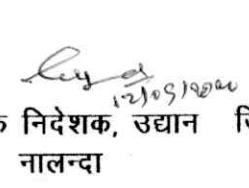 12/05/2020
क निदेशक, उद्यान
नालन्दा